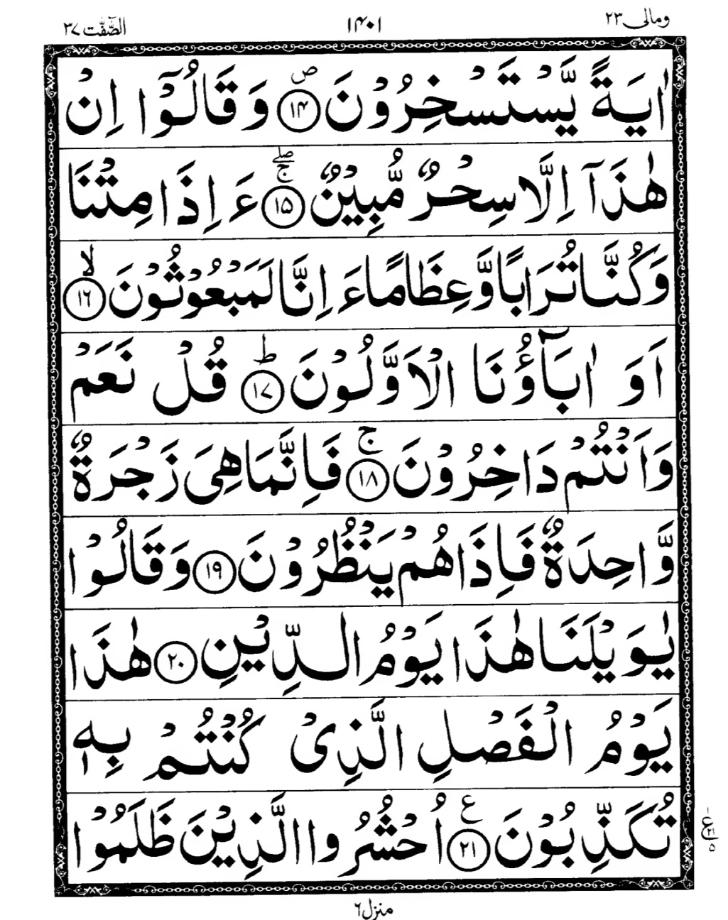 ومالی ٢٣ ١٤٠١ الصّٰٓفّٰت ٣٧
اٰيَةً يَّسْتَسْخِرُوْنَ ۪ص ﴿۱۴﴾ وَقَالُوْۤا اِنْ
هٰذَاۤ اِلَّا سِحْرٌ مُّبِيْنٌ ۚۖ ﴿۱۵﴾ ءَاِذَا مِتْنَا
وَكُنَّا تُرَابًا وَّعِظَامًا ءَاِنَّا لَمَبْعُوْثُوْنَ ۙ ﴿۱۶﴾
اَوَ اٰبَآؤُنَا الْاَوَّلُوْنَ ؕ ﴿۱۷﴾ قُلْ نَعَمْ
وَاَنْتُمْ دَاخِرُوْنَ ۚ ﴿۱۸﴾ فَاِنَّمَا هِىَ زَجْرَةٌ
وَّاحِدَةٌ فَاِذَا هُمْ يَنْظُرُوْنَ ﴿۱۹﴾ وَقَالُوْا
يٰوَيْلَنَا هٰذَا يَوْمُ الدِّيْنِ ﴿۲۰﴾ هٰذَا
يَوْمُ الْفَصْلِ الَّذِىْ كُنْتُمْ بِهٖ
تُكَذِّبُوْنَ ع ﴿۲۱﴾ اُحْشُرُوا الَّذِيْنَ ظَلَمُوْا
ع ٢١ ٥
منزل ٦